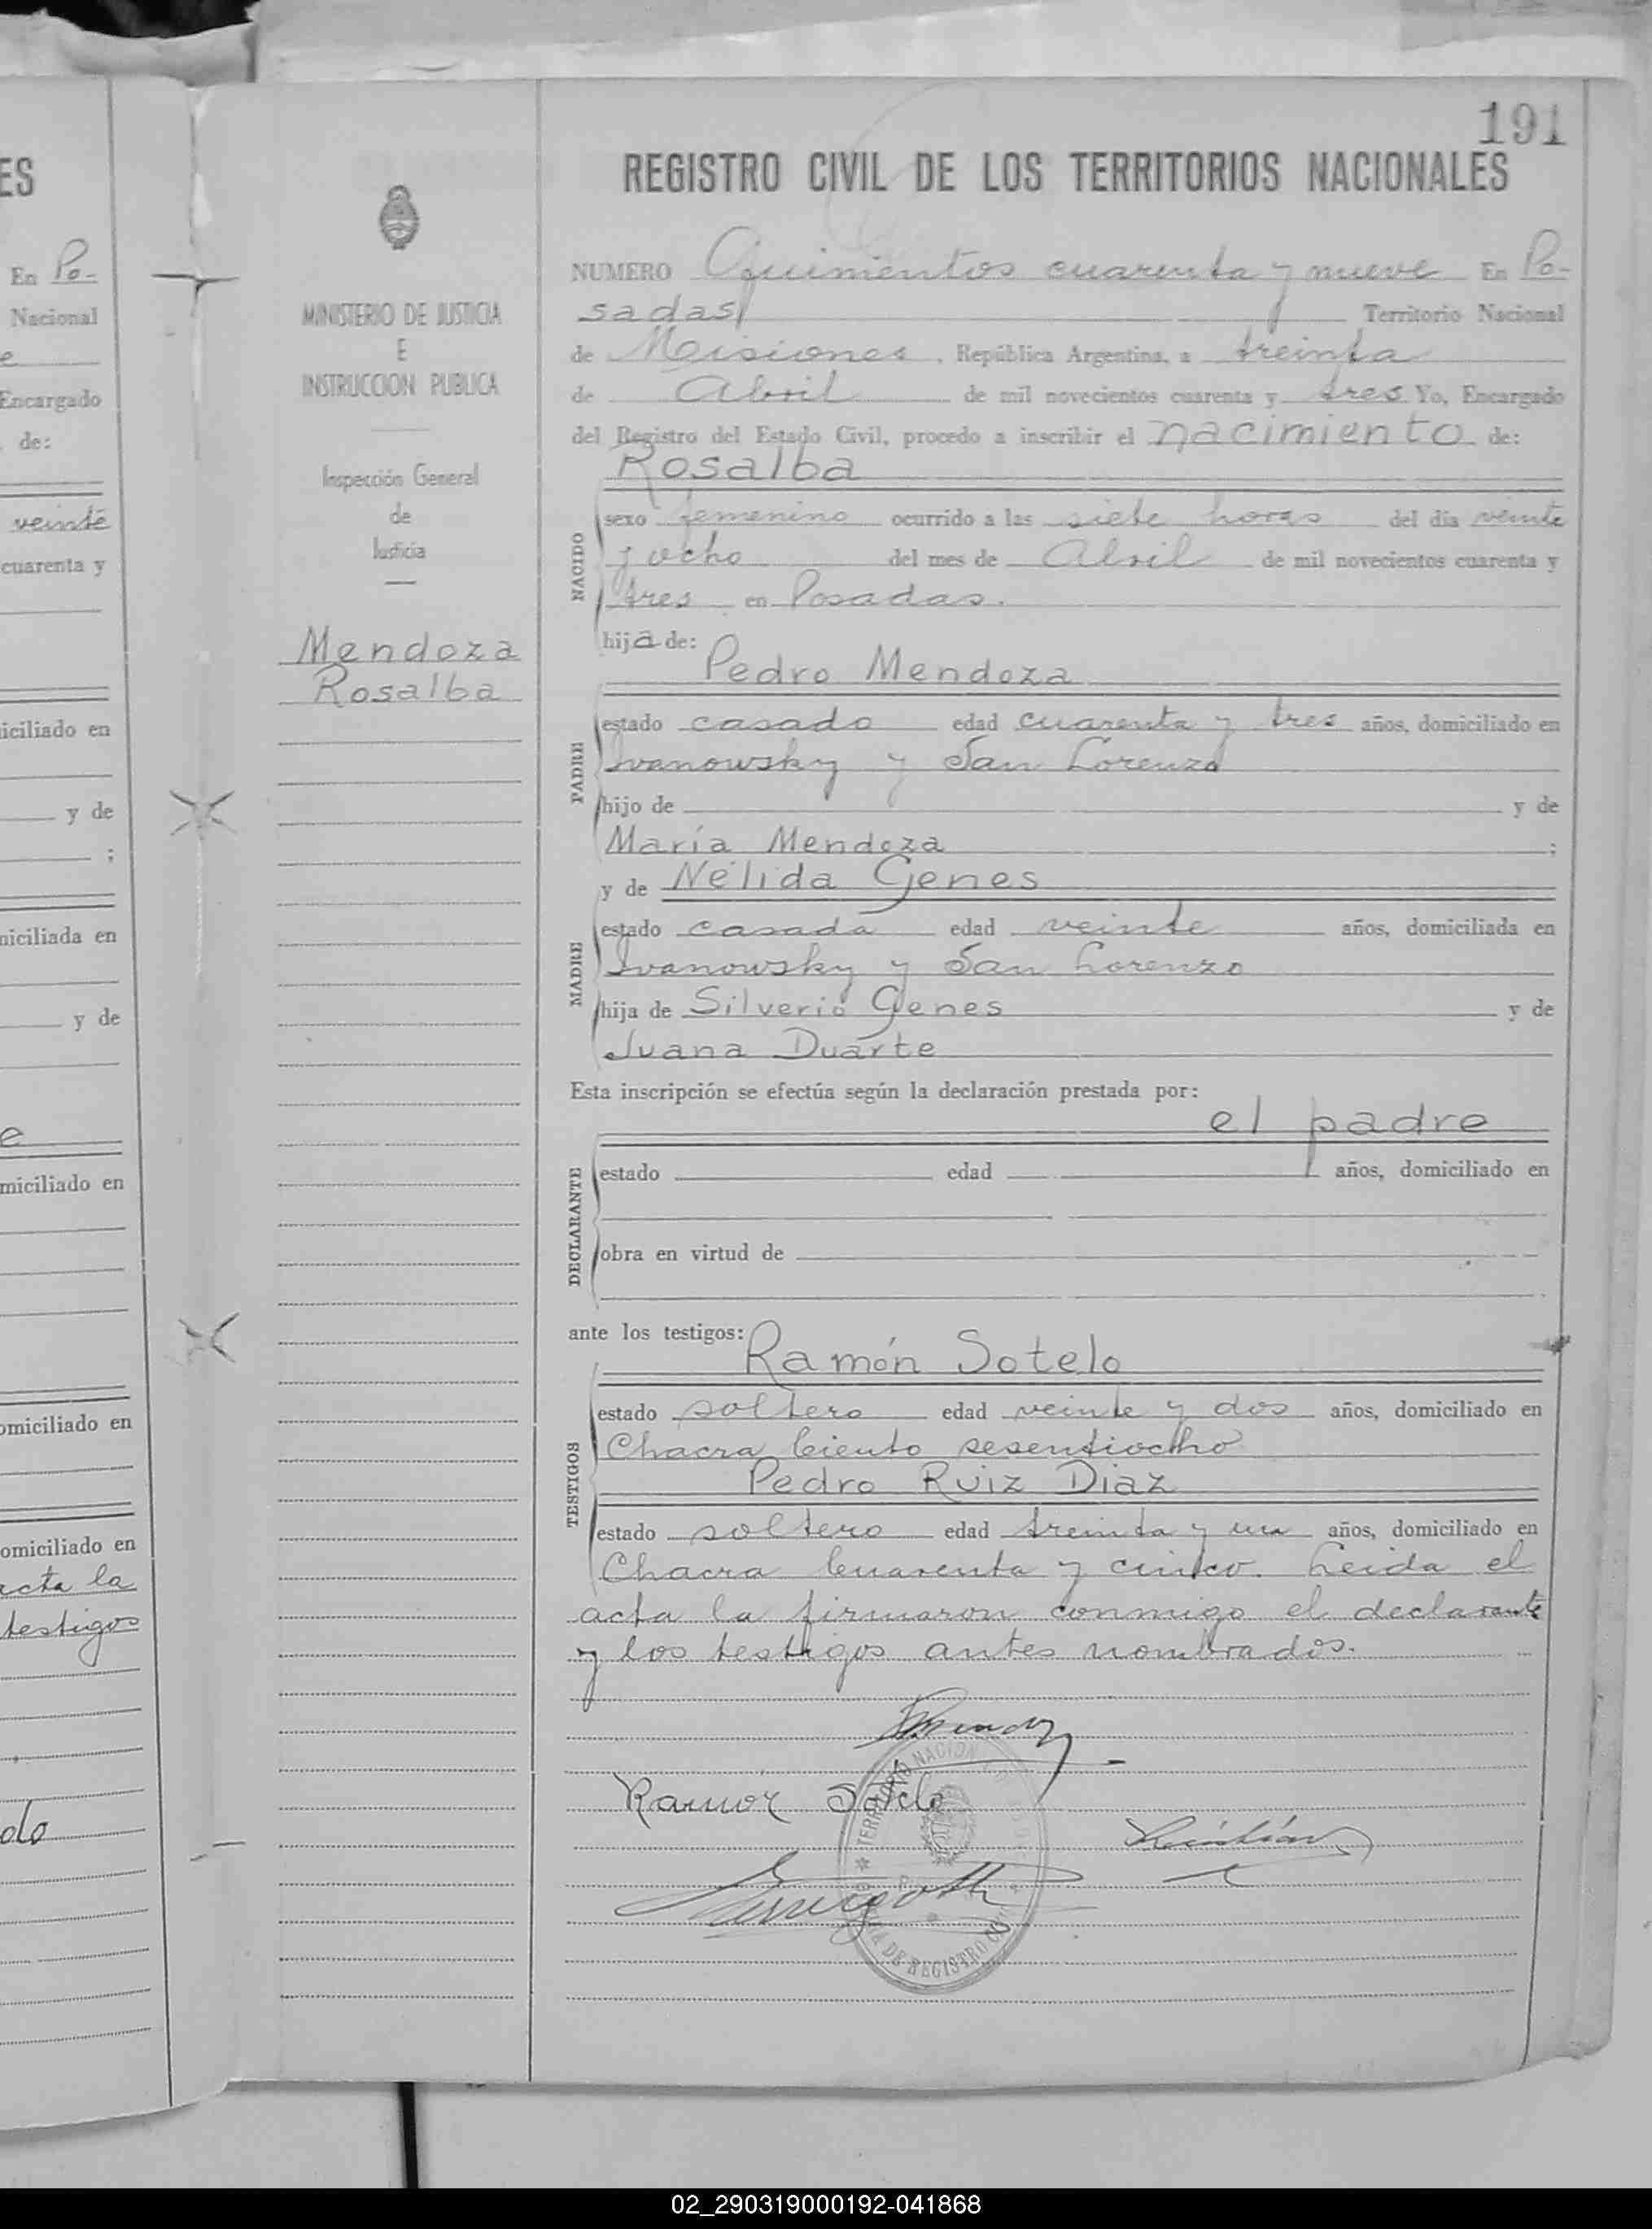 ES
En Po-
Nacional
e
Encargado
de:
veinte
cuarenta y
iciliado en
y de
;
niciliada en
y de
e
miciliado en
omiciliado en
omiciliado en
acta la
testigos
do
MINISTERIO DE JUSTICIA
E
INSTRUCCION PUBLICA
Inspección General
de
Justicia
Mendoza
Rosalba
191
REGISTRO CIVIL DE LOS TERRITORIOS NACIONALES
NUMERO Quinientos cuarenta y nueve En Po-
sadas Territorio Nacional
de Misiones, República Argentina, a treinta
de Abril de mil novecientos cuarenta y tres Yo, Encargado
del Registro del Estado Civil, procedo a inscribir el nacimiento de:
Rosalba
NACIDO
sexo femenino ocurrido a las siete horas del día veinte
y ocho del mes de Abril de mil novecientos cuarenta y
tres en Posadas.
hija de:
Pedro Mendoza
PADRE
estado casado edad cuarenta y tres años, domiciliado en
Ivanowsky y San Lorenzo
hijo de y de
María Mendoza ;
y de Nélida Genes
MADRE
estado casada edad veinte años, domiciliada en
Ivanowsky y San Lorenzo
hija de Silverio Genes y de
Juana Duarte
Esta inscripción se efectúa según la declaración prestada por:
el padre
DECLARANTE
estado edad años, domiciliado en
obra en virtud de
ante los testigos:
Ramón Sotelo
TESTIGOS
estado soltero edad veinte y dos años, domiciliado en
Chacra Ciento sesentiocho
Pedro Ruiz Diaz
estado soltero edad treinta y un años, domiciliado en
Chacra Cuarenta y cinco. Leida el
acta la firmaron conmigo el declarante
y los testigos antes nombrados.
Ramon Sotelo
TERRITORIO NACION
DE REGISTRO
02_290319000192-041868